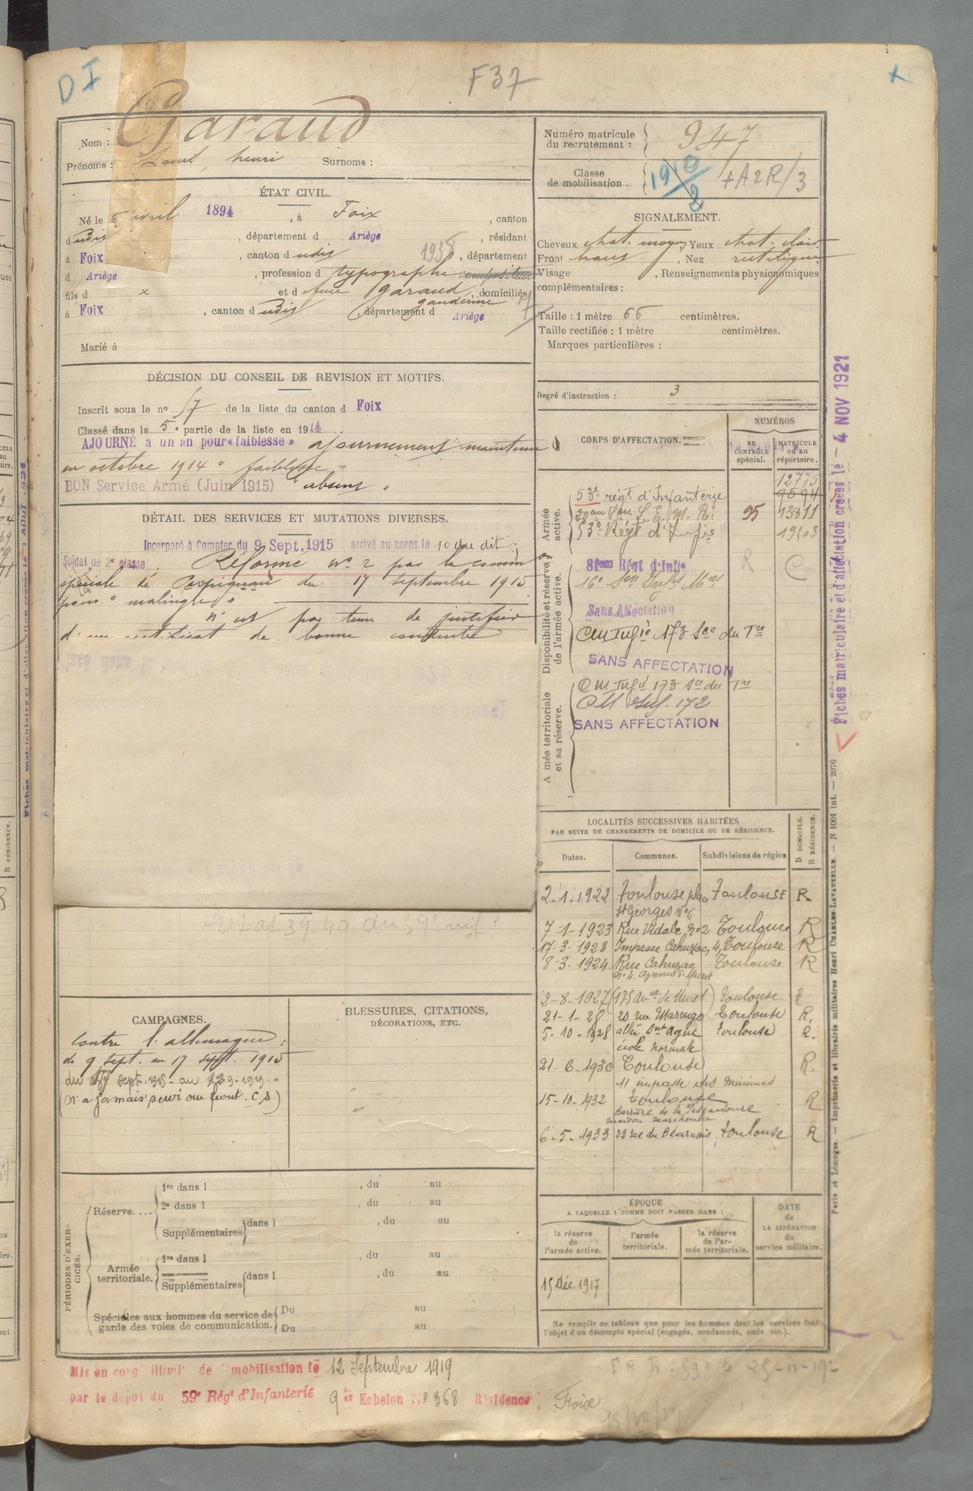 DI
F37
Nom : Garaud
Prénoms : Louis, henri Surnoms :
Numéro matricule du recrutement : 947
Classe de mobilisation : 1910/2 + A2R/3
ÉTAT CIVIL.
Né le 5 avril 1894, à Foix, canton
dudis, département d Ariège, résidant
à Foix, canton dudis 1938, département
d Ariège, profession de typographe compositeur
fils d x et d feue Garaud, domiciliés
à Foix, canton dudis, département d Ariège
Marié à
SIGNALEMENT.
Cheveux chat. moyen Yeux chat. clair
Front haut, Nez rectiligne
Visage, Renseignements physionomiques
complémentaires :
Taille : 1 mètre 66 centimètres.
Taille rectifiée : 1 mètre centimètres.
Marques particulières :
Degré d'instruction : 3
DÉCISION DU CONSEIL DE REVISION ET MOTIFS.
Inscrit sous le no 57 de la liste du canton d Foix
Classé dans la 5e partie de la liste en 1914.
AJOURNÉ à un an pour « faiblesse » ajournement maintenu
en octobre 1914 " faiblesse "
BON Service Armé (Juin 1915) " absent "
DÉTAIL DES SERVICES ET MUTATIONS DIVERSES.
Incorporé à compter du 9 Sept. 1915 arrivé au corps le 10 du dit ;
Soldat de 2e classe. Réformé No 2 par la comm
spéciale de Perpignan du 17 septembre 1915
pour " malingre "
n'est pas tenu de justifier
d'un certificat de bonne conduite
CORPS D'AFFECTATION.
NUMÉROS
au contrôle spécial.
matricule ou au répertoire.
Armée active.
53e régt d'Infanterie
53e Régt d'Infie
12775
9594
95 13311
Disponibilité et réserve de l'armée active.
81eme Régt d'Infie
R C
Sans Affectation
SANS AFFECTATION
Armée territoriale et sa réserve.
SANS AFFECTATION
Fiches matriculaire et d'affectation créées le - 4 NOV 1921
LOCALITÉS SUCCESSIVES HABITÉES
PAR SUITE DE CHANGEMENTS DE DOMICILE OU DE RÉSIDENCE.
Dates. Communes. Subdivisions de région D DOMICILE. R RÉSIDENCE.
2-1-1922 Toulouse place Toulouse R
St Georges No 6
7-1-1923 Rue Vidale, No 2 Toulouse R
17-3-1923 Impasse Cahuzac, 4, Toulouse R
8-3-1924 Rue Cahuzac Toulouse R
2-8-1927 (175 Avue de Muret) Toulouse R
21-1-28 20 rue Marengo Toulouse R.
5-10-1928 allée Ste Agne Toulouse R.
école Normale
21-6-1930 Toulouse R.
11 impasse des Minimes
15-10-1932 Toulouse R
6-5-1933 22 rue du Béarnais, Toulouse R
CAMPAGNES.
Contre l'allemagne :
du 9 sept. au 17 sept. 1915
(N'a jamais servi au front. C S)
BLESSURES, CITATIONS,
DÉCORATIONS, ETC.
PÉRIODES D'EXERCICES.
Réserve....
1re dans l , du au
2e dans l , du au
Supplémentaires dans l , du au
Armée territoriale.
1re dans l , du au
Supplémentaires dans l , du au
Spéciales aux hommes du service de garde des voies de communication.
Du au
Du au
ÉPOQUE
A LAQUELLE L'HOMME DOIT PASSER DANS :
la réserve de l'armée active.
l'armée territoriale.
la réserve de l'armée territoriale.
DATE de LA LIBÉRATION du service militaire.
15 Déc 1917
Ne remplir ce tableau que pour les hommes dont les services font
l'objet d'un décompte spécial (engagés, condamnés, omis, etc.).
Mis en congé illimité de démobilisation le 12 Septembre 1919
par le dépôt du 59e Régt d'Infanterie 9er Echelon No 368 Résidence : Foix
Paris et Limoges. — Imprimerie et librairie militaires Henri CHARLES-LAVAUZELLE. — N 1001 Int. — 2976